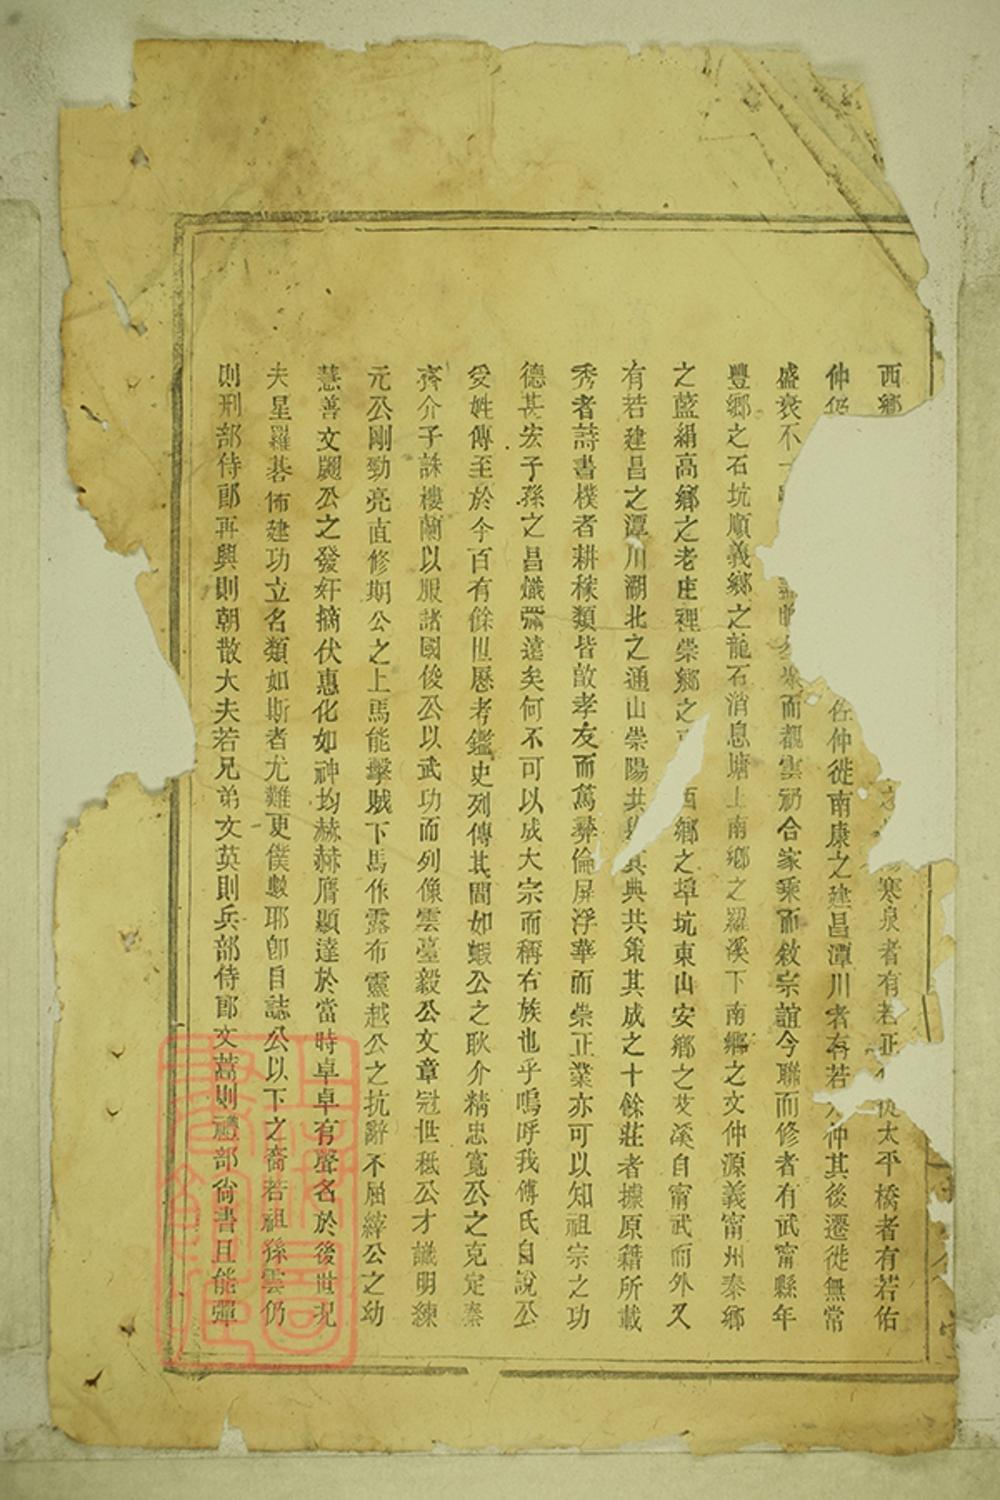 西鄉
寒泉者有若正
從太平橋者有若佑
仲
佐仲徙南康之建昌潭川者有若
仲其後遷徙無常
盛衰不一
而觀雲礽合家乘而敘宗誼今聯而修者有武甯縣年
豐鄉之石坑順義鄉之龍石消息塘上南鄉之羅溪下南鄉之文仲源義甯州泰鄉
之藍絹高鄉之老庄裡崇鄉之
西鄉之埠坑東山安鄉之芆溪自甯武而外又
有若建昌之潭川湖北之通山崇陽共
其典共策其成之十餘莊者據原籍所載
秀者詩書樸者耕稼類皆敵孝友而篤彝倫屏浮華而崇正業亦可以知祖宗之功
德甚宏子孫之昌熾彌遠矣何不可以成大宗而稱右族也乎嗚呼我傅氏自說公
受姓傳至於今百有餘世歷考鑑史列傳其間如蝦公之耿介精忠寬公之克定秦
齊介子誅樓蘭以服諸國俊公以武功而列像雲臺毅公文章冠世秪公才識明練
元公剛勁亮直修期公之上馬能擊賊下馬作露布靈越公之抗辭不屈縡公之幼
慧善文翽公之發奸摘伏惠化如神均赫赫膺顯達於當時卓卓有聲名於後世况
夫星羅碁佈建功立名類如斯者尤難更僕數耶卽自誌公以下之裔若祖孫雲仍
則刑部侍郎再興則朝散大夫若兄弟文英則兵部侍郎文蒿則禮部尙書且能彈